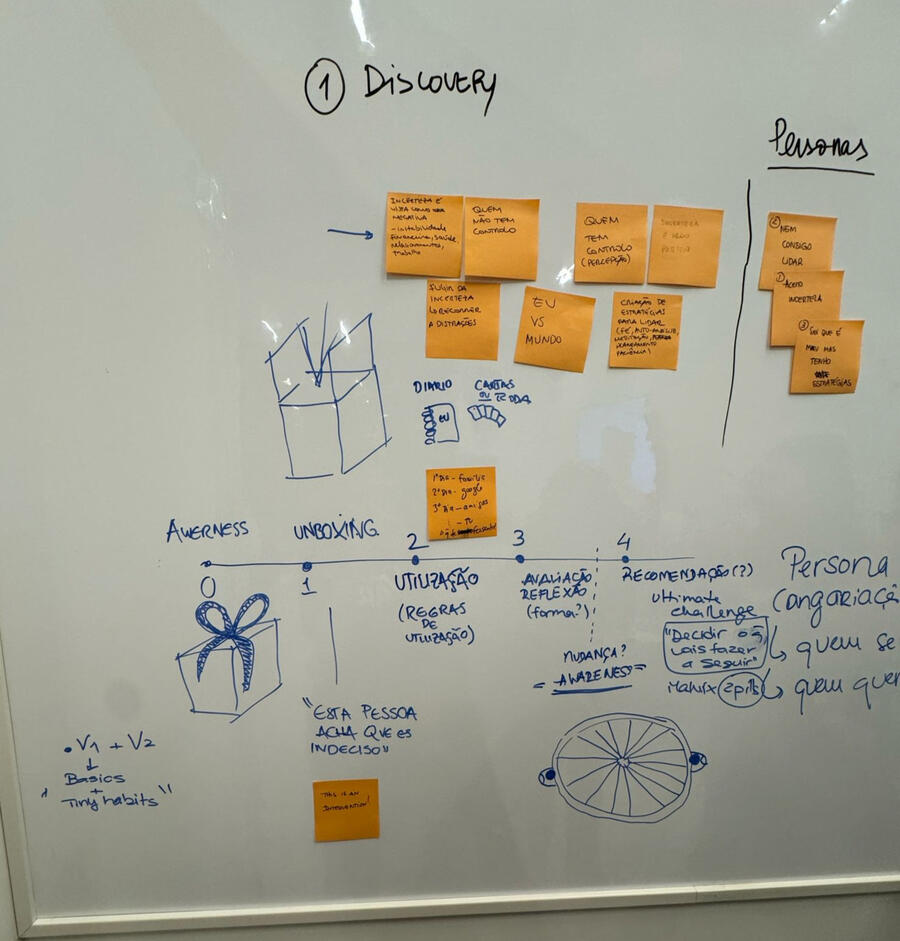 1 DISCOVERY
Personas
INCERTEZA É
VISTA COMO
NEGATIVA
- instabilidade
financeira, saúde,
relacionamentos,
trabalho
QUEM
NÃO TEM
CONTROLO
QUEM
TEM
CONTROLO
(PERCEPÇÃO)
INCERTEZA
É
POSITIVA
2 NEM
CONSIGO
LIDAR
1 ACEITO
INCERTEZA
3 SEI QUE É
MAU MAS
TENHO
ESTRATÉGIAS
FUGIR DA
INCERTEZA
↳ RECORRER
A DISTRAÇÕES
EU
VS
MUNDO
CRIAÇÃO DE
ESTRATÉGIAS
PARA LIDAR
(FÉ, AUTO-ANÁLISE,
MEDITAÇÃO,
PLANEAMENTO
PACIÊNCIA)
DIARIO
EU
CARTAS
OU RODA
1º DIA - família
2º DIA - google
3º DIA - amigos
AWERNESS
UNBOXING
0
1
2
3
4
UTILIZAÇÃO
(REGRAS
DE
UTILIZAÇÃO)
AVALIAÇÃO
REFLEXÃO
(forma?)
RECOMENDAÇÃO(?)
ultimate
challenge
"Decidir o q̃
vais fazer
a seguir"
Matrix 2 pills
Persona
(angariaçã
quem se
quem quer
MUDANÇA?
= AWARENESS =
"ESTA PESSOA
ACHA QUE és
INDECISO"
• V1 + V2
↓
Basics
+
"Tiny habits"
THIS IS AN
INTERVENTION!